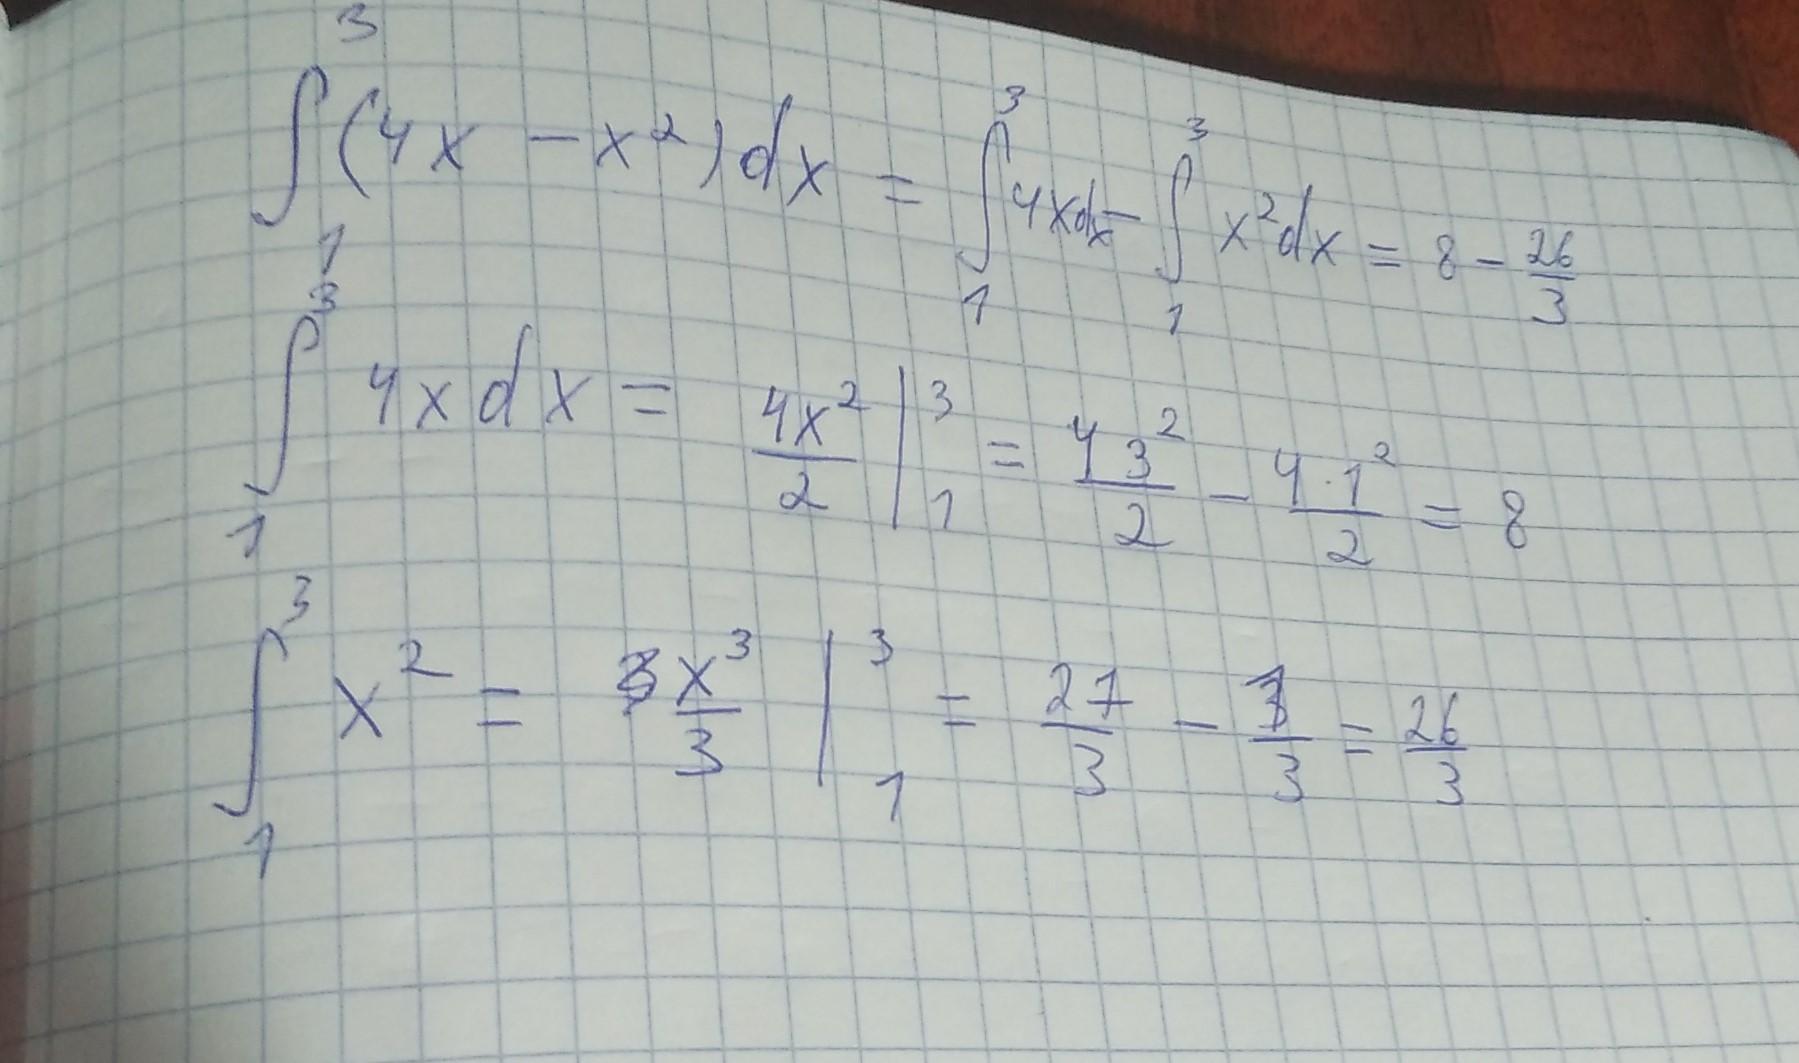 ∫₁³ (4x − x²)dx = ∫₁³ 4xdx − ∫₁³ x²dx = 8 − 26/3
∫₁³ 4xdx = 4x²/2 |₁³ = 4 3²/2 − 4·1²/2 = 8
∫₁³ x² = x³/3 |₁³ = 27/3 − 1/3 = 26/3